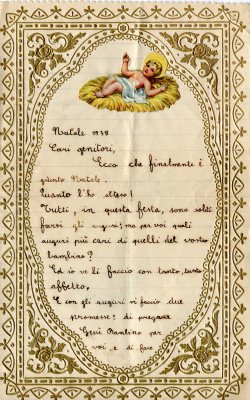 Natale 1938
Cari genitori,
Ecco che finalmente è
giunto Natale.
Quanto l'ho atteso!
Tutti, in questa festa, sono soliti
farsi gli auguri; ma per voi quali
auguri più cari di quelli del vostro
bambino?
Ed io ve li faccio con tanto, tanto
affetto,
E con gli auguri vi faccio due
promesse: di pregare
Gesù Bambino per
voi, e di fare